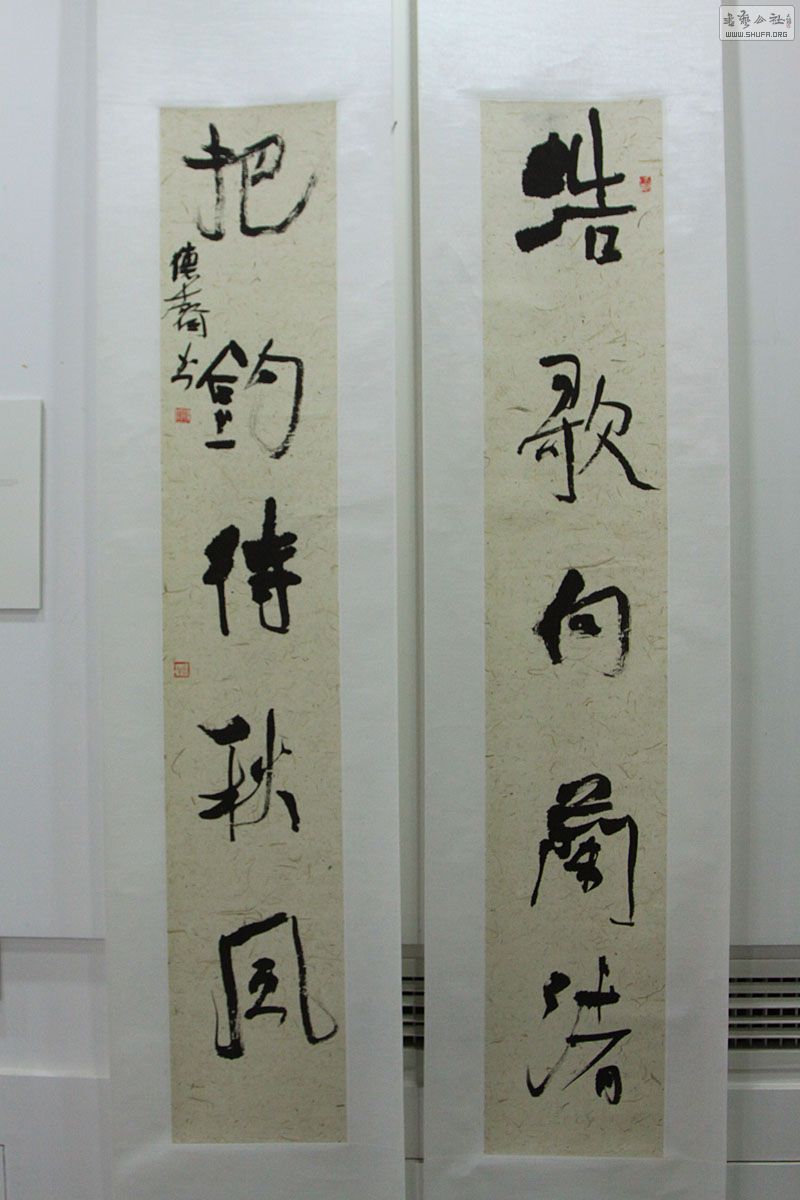 浩歌向蘭渚
把釣待秋風
德裔书
書藝公社
WWW.SHUFA.ORG